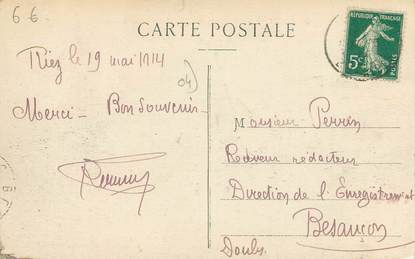 6 €
CARTE POSTALE
RÉPUBLIQUE FRANÇAISE
5c
POSTES
Riez le 19 mai 1914
04
Merci - Bon souvenir
Monsieur Perrin
Receveur rédacteur
Direction de l'Enregistrement
Besançon
Doubs